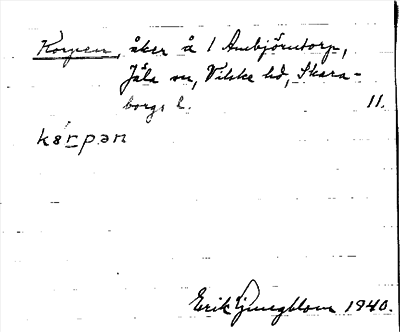 Korpen, åker å 1 Ambjörntorp,
Jäla sn, Vilske hd, Skara-
borgs l. 11.
kȯrpən
Erik Ljungblom 1940.